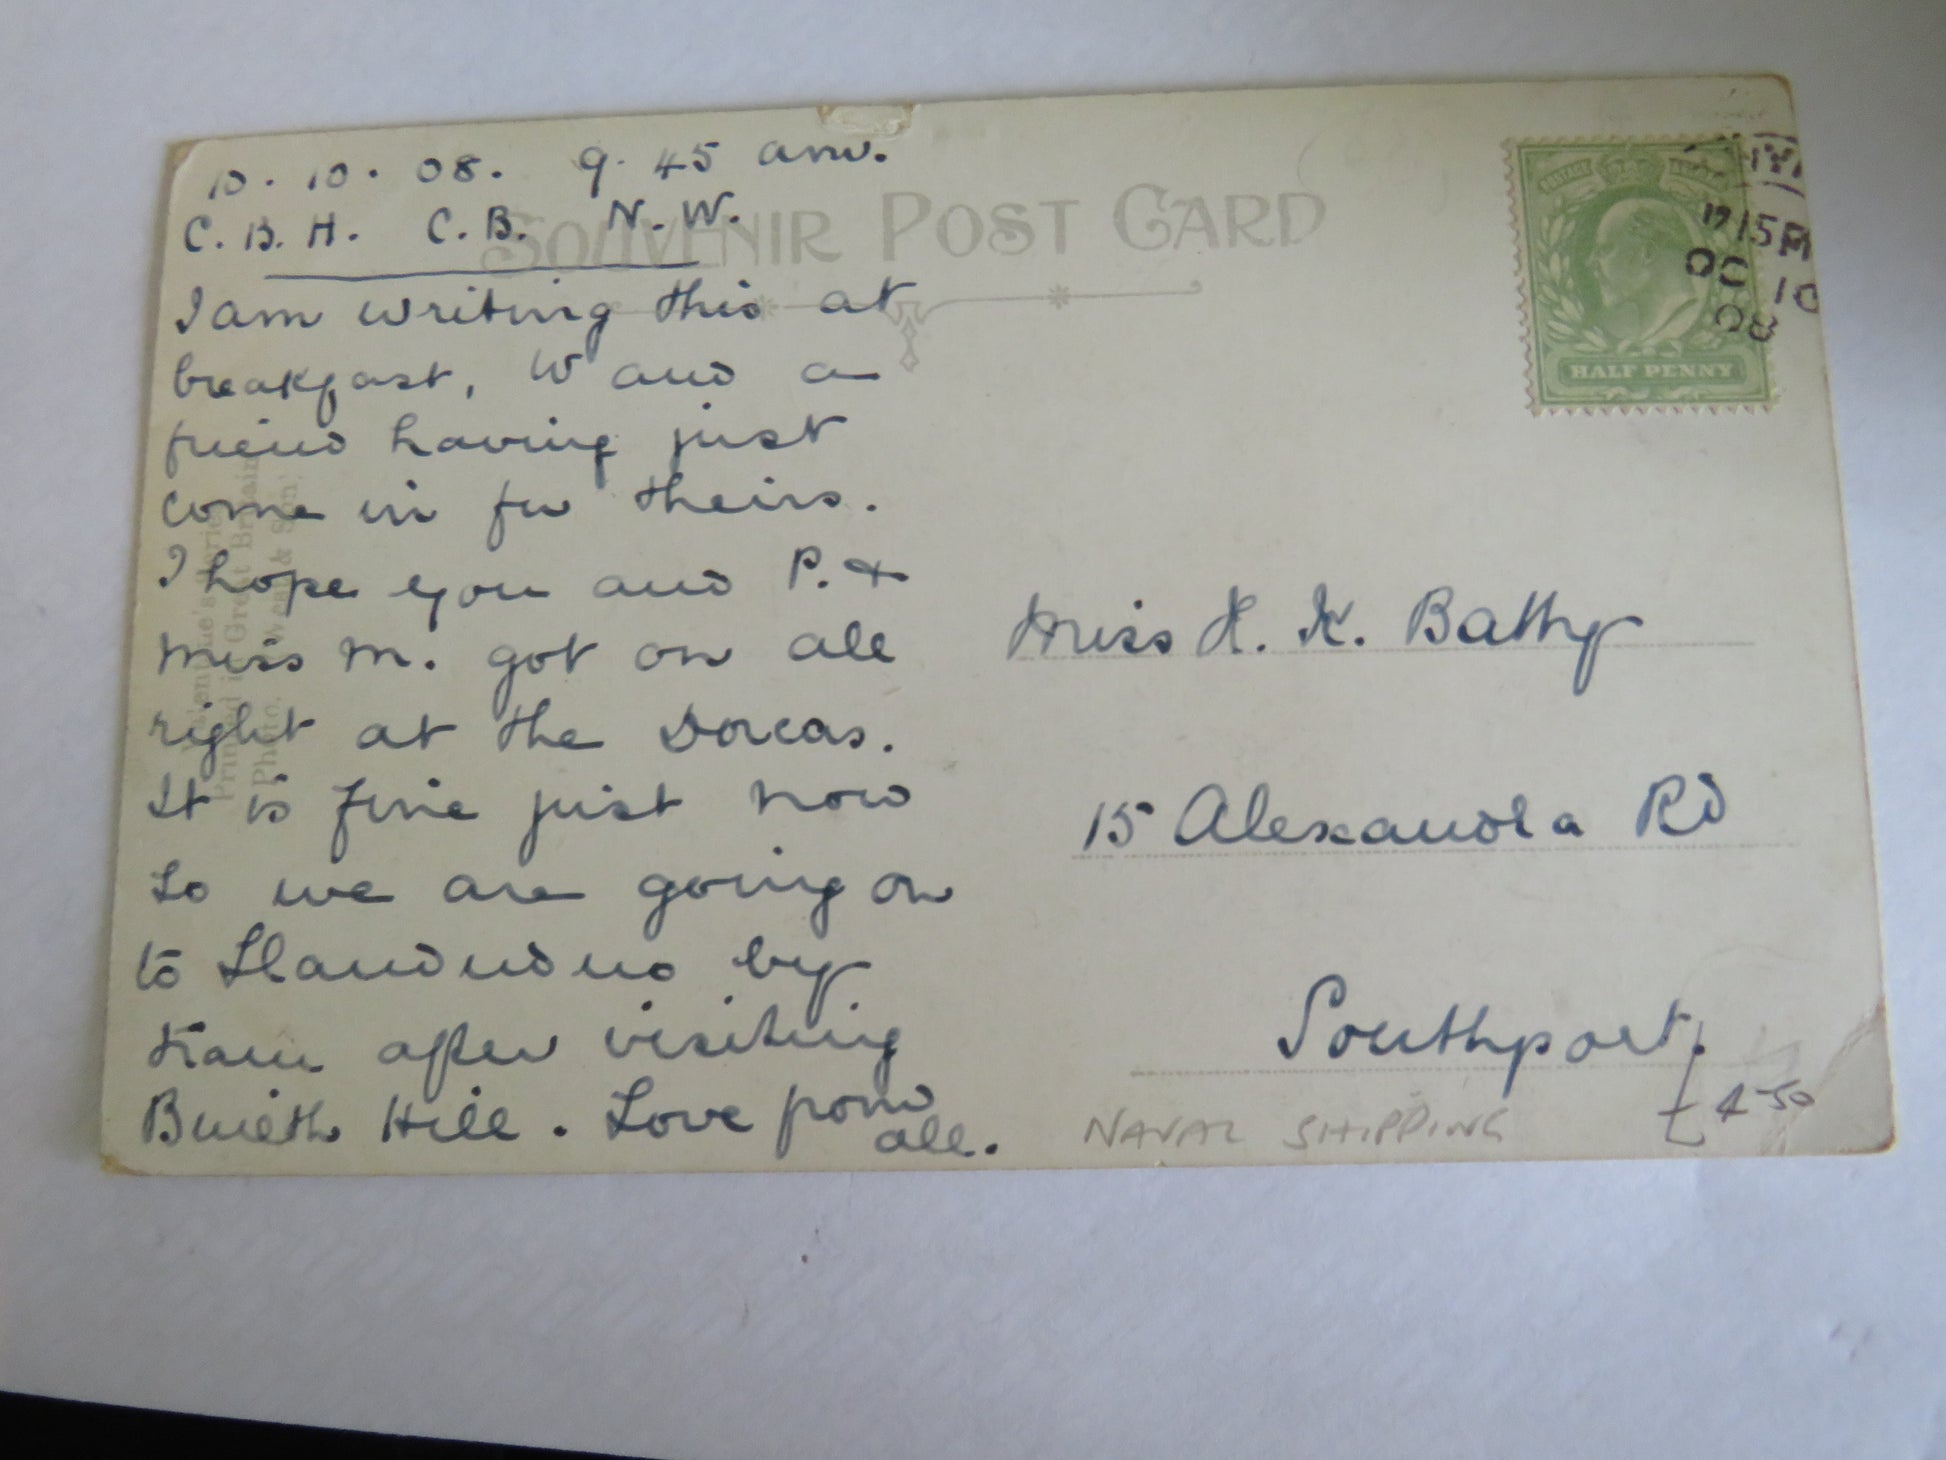 10.10.08. 9.45 am.
C.B.H. C.B. N.W.
SOUVENIR POST CARD
I am writing this at
breakfast, W and a
friend having just
come in for theirs.
I hope you and P. +
Miss M. got on all
right at the Dorcas.
It is fine just now
so we are going on
to Llandudno by
tram after visiting
Bwieth Hill. Love from
all.
Valentine's Series
Printed in Great Britain
Photo, West & Son.
HALF PENNY
12 15 PM
OC 10
08
Miss H. K. Bathy
15 Alexandra Rd
Southport.
NAVAL SHIPPING £4-50